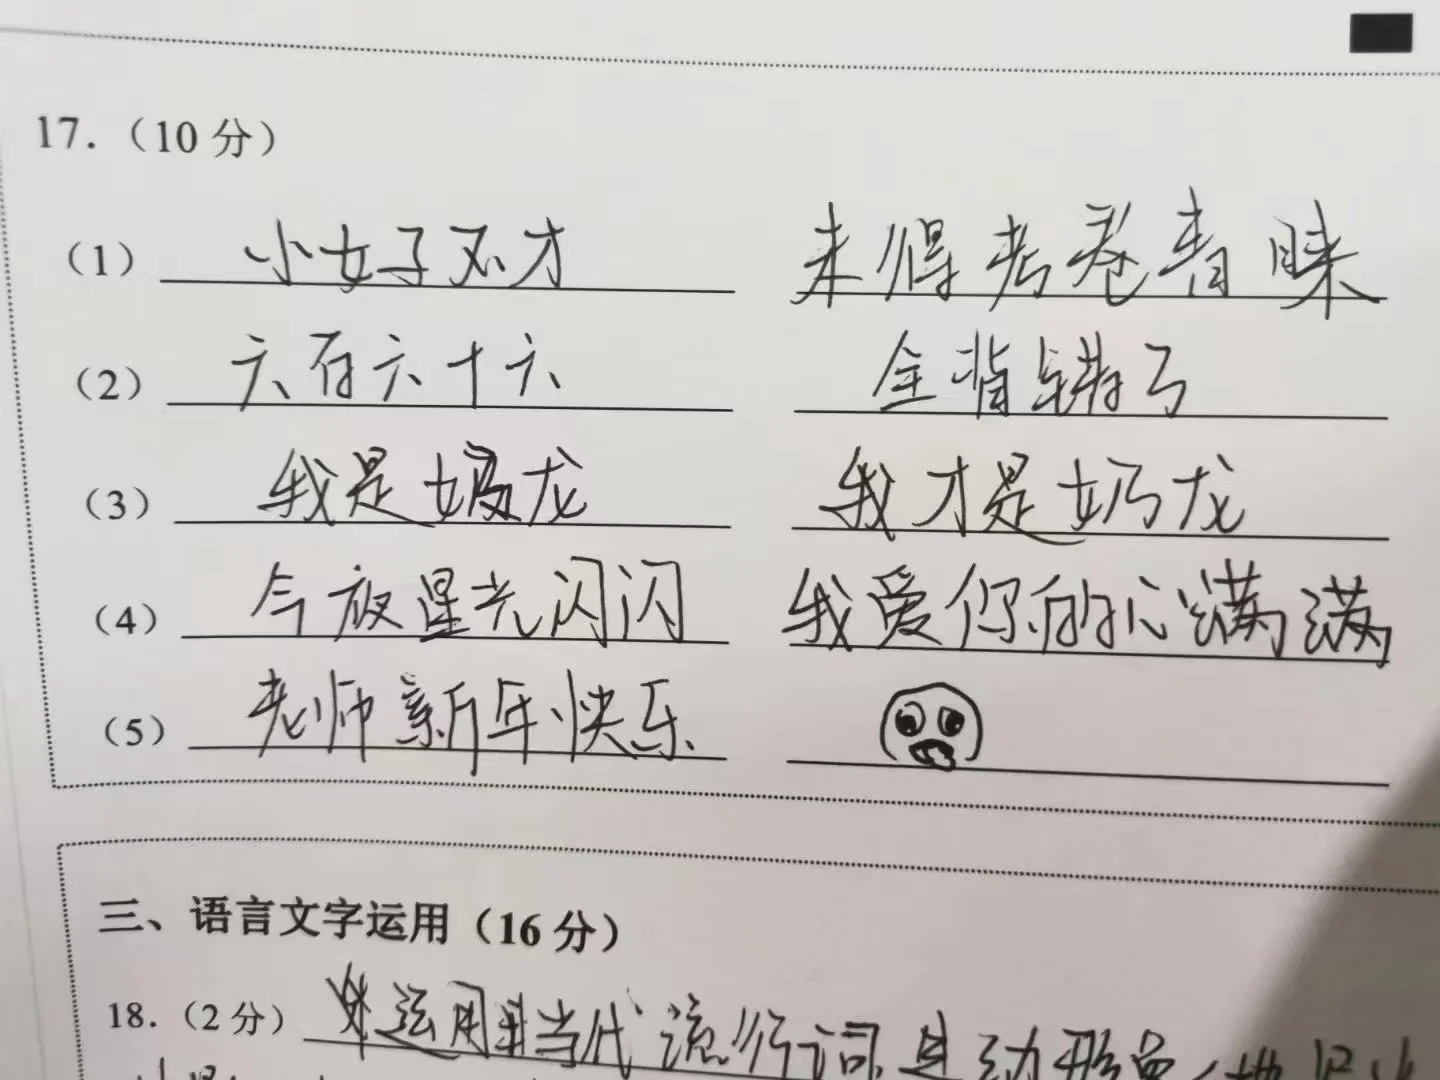 17.（10 分）
（1） 小女子不才 未得考卷青睐
（2） 六百六十六 全背错了
（3） 我是奶龙 我才是奶龙
（4） 今夜星光闪闪 我爱你的心满满
（5） 老师新年快乐
三、语言文字运用（16 分）
18.（2 分） 运用 当代流行词 动形